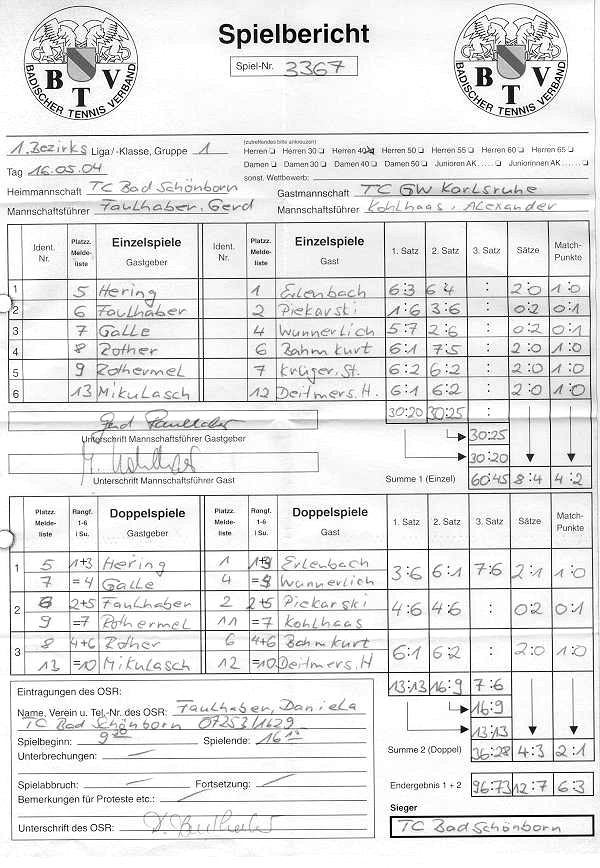 Spielbericht
BADISCHER TENNIS VERBAND
BTV
BADISCHER TENNIS VERBAND
BTV
Spiel-Nr. 3367
(zutreffendes bitte ankreuzen)
1. Bezirks Liga/-Klasse, Gruppe 1 Herren Herren 30 Herren 40 Herren 50 Herren 55 Herren 60 Herren 65
Damen Damen 30 Damen 40 Damen 50 Junioren AK..... Juniorinnen AK......
Tag 16.05.04 sonst. Wettbewerb:
Heimmannschaft TC Bad Schönborn Gastmannschaft TC GW Karlsruhe
Mannschaftsführer Faulhaber, Gerd Mannschaftsführer Kohlhaas, Alexander
Ident. Nr. Platzz. Melde-liste Einzelspiele Gastgeber Ident. Nr. Platzz. Melde-liste Einzelspiele Gast 1. Satz 2. Satz 3. Satz Sätze Match-Punkte
1 5 Hering 1 Erlenbach 6:3 6:4 : 2:0 1:0
2 6 Faulhaber 2 Piekarski 1:6 3:6 : 0:2 0:1
3 7 Galle 4 Wunnerlich 5:7 2:6 : 0:2 0:1
4 8 Rother 6 Bahm Kurt 6:1 7:5 : 2:0 1:0
5 9 Rothermel 7 Krüger, St. 6:2 6:2 : 2:0 1:0
6 13 Mikulasch 12 Deitmers, H. 6:1 6:2 : 2:0 1:0
30:20 30:25 :
Unterschrift Mannschaftsführer Gastgeber
30:25
30:20
Unterschrift Mannschaftsführer Gast Summe 1 (Einzel) 60:45 8:4 4:2
Platzz. Melde-liste Rangf. 1-6 i Su. Doppelspiele Gastgeber Platzz. Melde-liste Rangf. 1-6 i Su. Doppelspiele Gast 1. Satz 2. Satz 3. Satz Sätze Match-Punkte
1 5 1+3 Hering 1 Erlenbach 3:6 6:1 7:6 2:1 1:0
7 =4 Galle 4 Wunnerlich
2 6 2+5 Faulhaber 2 2+5 Piekarski 4:6 4:6 : 0:2 0:1
9 =7 Rothermel 11 =7 Kohlhaas
3 8 4+6 Rother 6 4+6 Bahm Kurt 6:1 6:2 : 2:0 1:0
13 =10 Mikulasch 12 =10 Deitmers, H
13:13 16:9 7:6
Eintragungen des OSR:
Name, Verein u. Tel.-Nr. des OSR: Faulhaber, Daniela
16:9
TC Bad Schönborn 07253/1629
13:13
Spielbeginn: 9 30 Spielende: 16 15
Summe 2 (Doppel) 36:28 4:3 2:1
Unterbrechungen: —
Spielabbruch: — Fortsetzung: —
Endergebnis 1 + 2 96:73 12:7 6:3
Bemerkungen für Proteste etc.: —
Sieger
Unterschrift des OSR:
TC Bad Schönborn